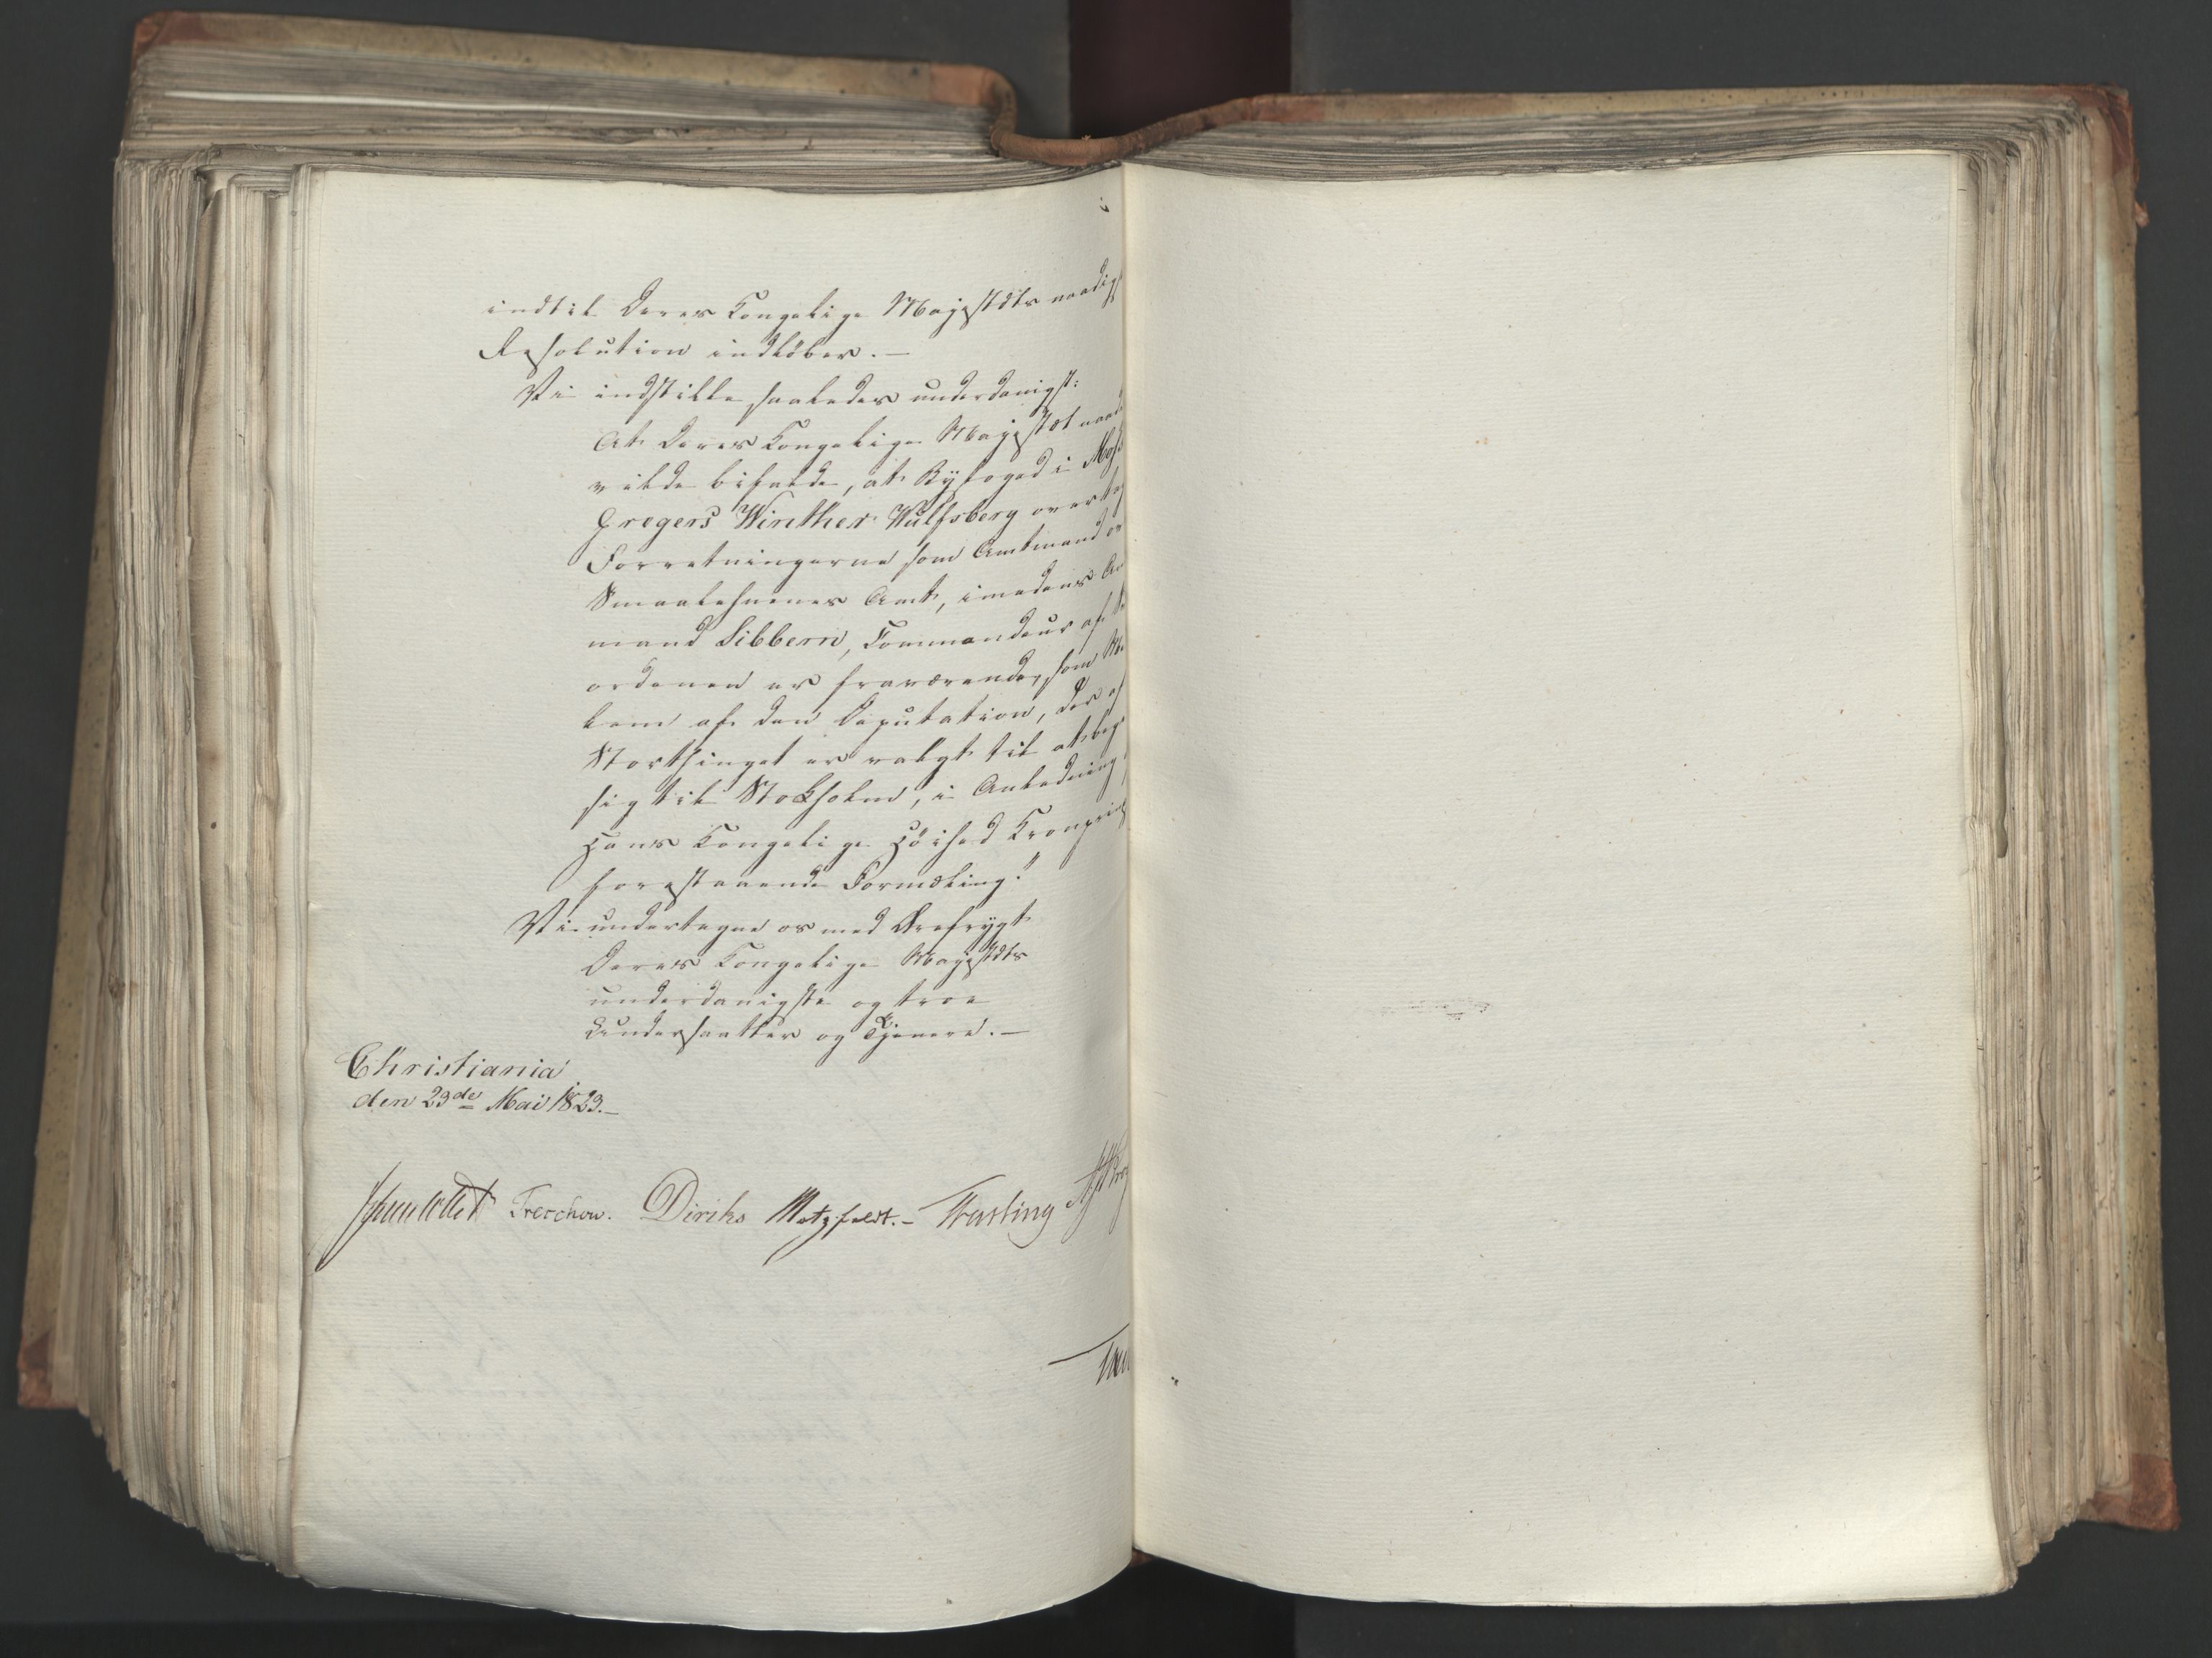 indtil Deres Kongelige Majestæts naadigst
Resolution indløber.—
Vi indstille saaledes underdanigst:
At Deres Kongelige Majestæt naad
vilde bifalde, at Byfoged i Moss
Gregers Winther Wulfsberg overtag
Forretningerne som Amtmand ov
Smaalehnenes Amt, imedens Am
mand Sibbern, Commandeur af
ordenen er fraværende, som Me
lem af den Deputation, der af
Storthinget er valgt til at beg
sig til Stokholm, i Anledning
Hans Kongelige Høihed Kronprin
forestaaende Formæling."
Vi undertegne os med Ærefrygt
Deres Kongelige Majestæts
underdanigste og troe
Undersaatter og Tjenere.—
Christiania
den 23de Mai 1823.—
Treschow. Diriks Motzfeldt.— Fasting